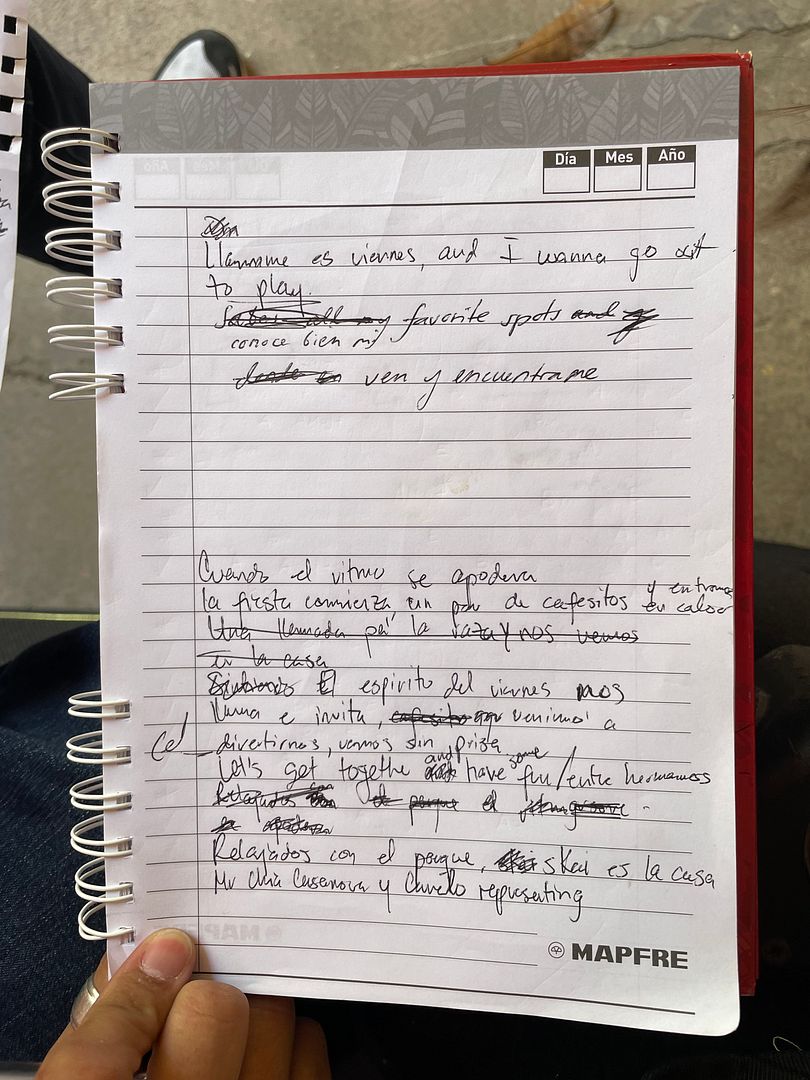 Día Mes Año
Llamame es viernes, and I wanna go out
to play.
Saben all my favorite spots and
conoce bien mis
donde en ven y encuentrame
Cuando el ritmo se apodera
la fiesta comienza, un par de cafesitos y entramos en calor
Una llamada pa' la raza y nos vemos
en la casa
El espirito del viernes nos
llama e invita, cafesito venimos a
divertirnos, vamos sin prisa
Let's get togethe and have some fun / entre hermanos
Relajados con el parque el groove
se apodera
Relajados con el parque, skai es la casa
Mr Casanova y representing
MAPFRE